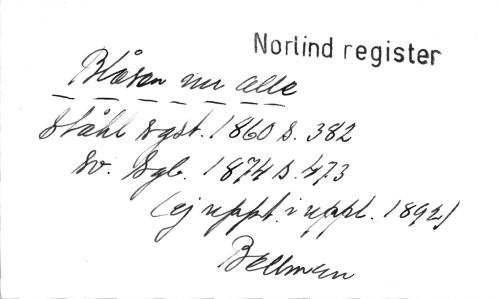 Norlind register
Blåsen nu alle
Ståhl sgst. 1860 s. 382
Sv. Sgb. 1874 s. 473
(ej uppt. i uppl. 1892)
Bellman